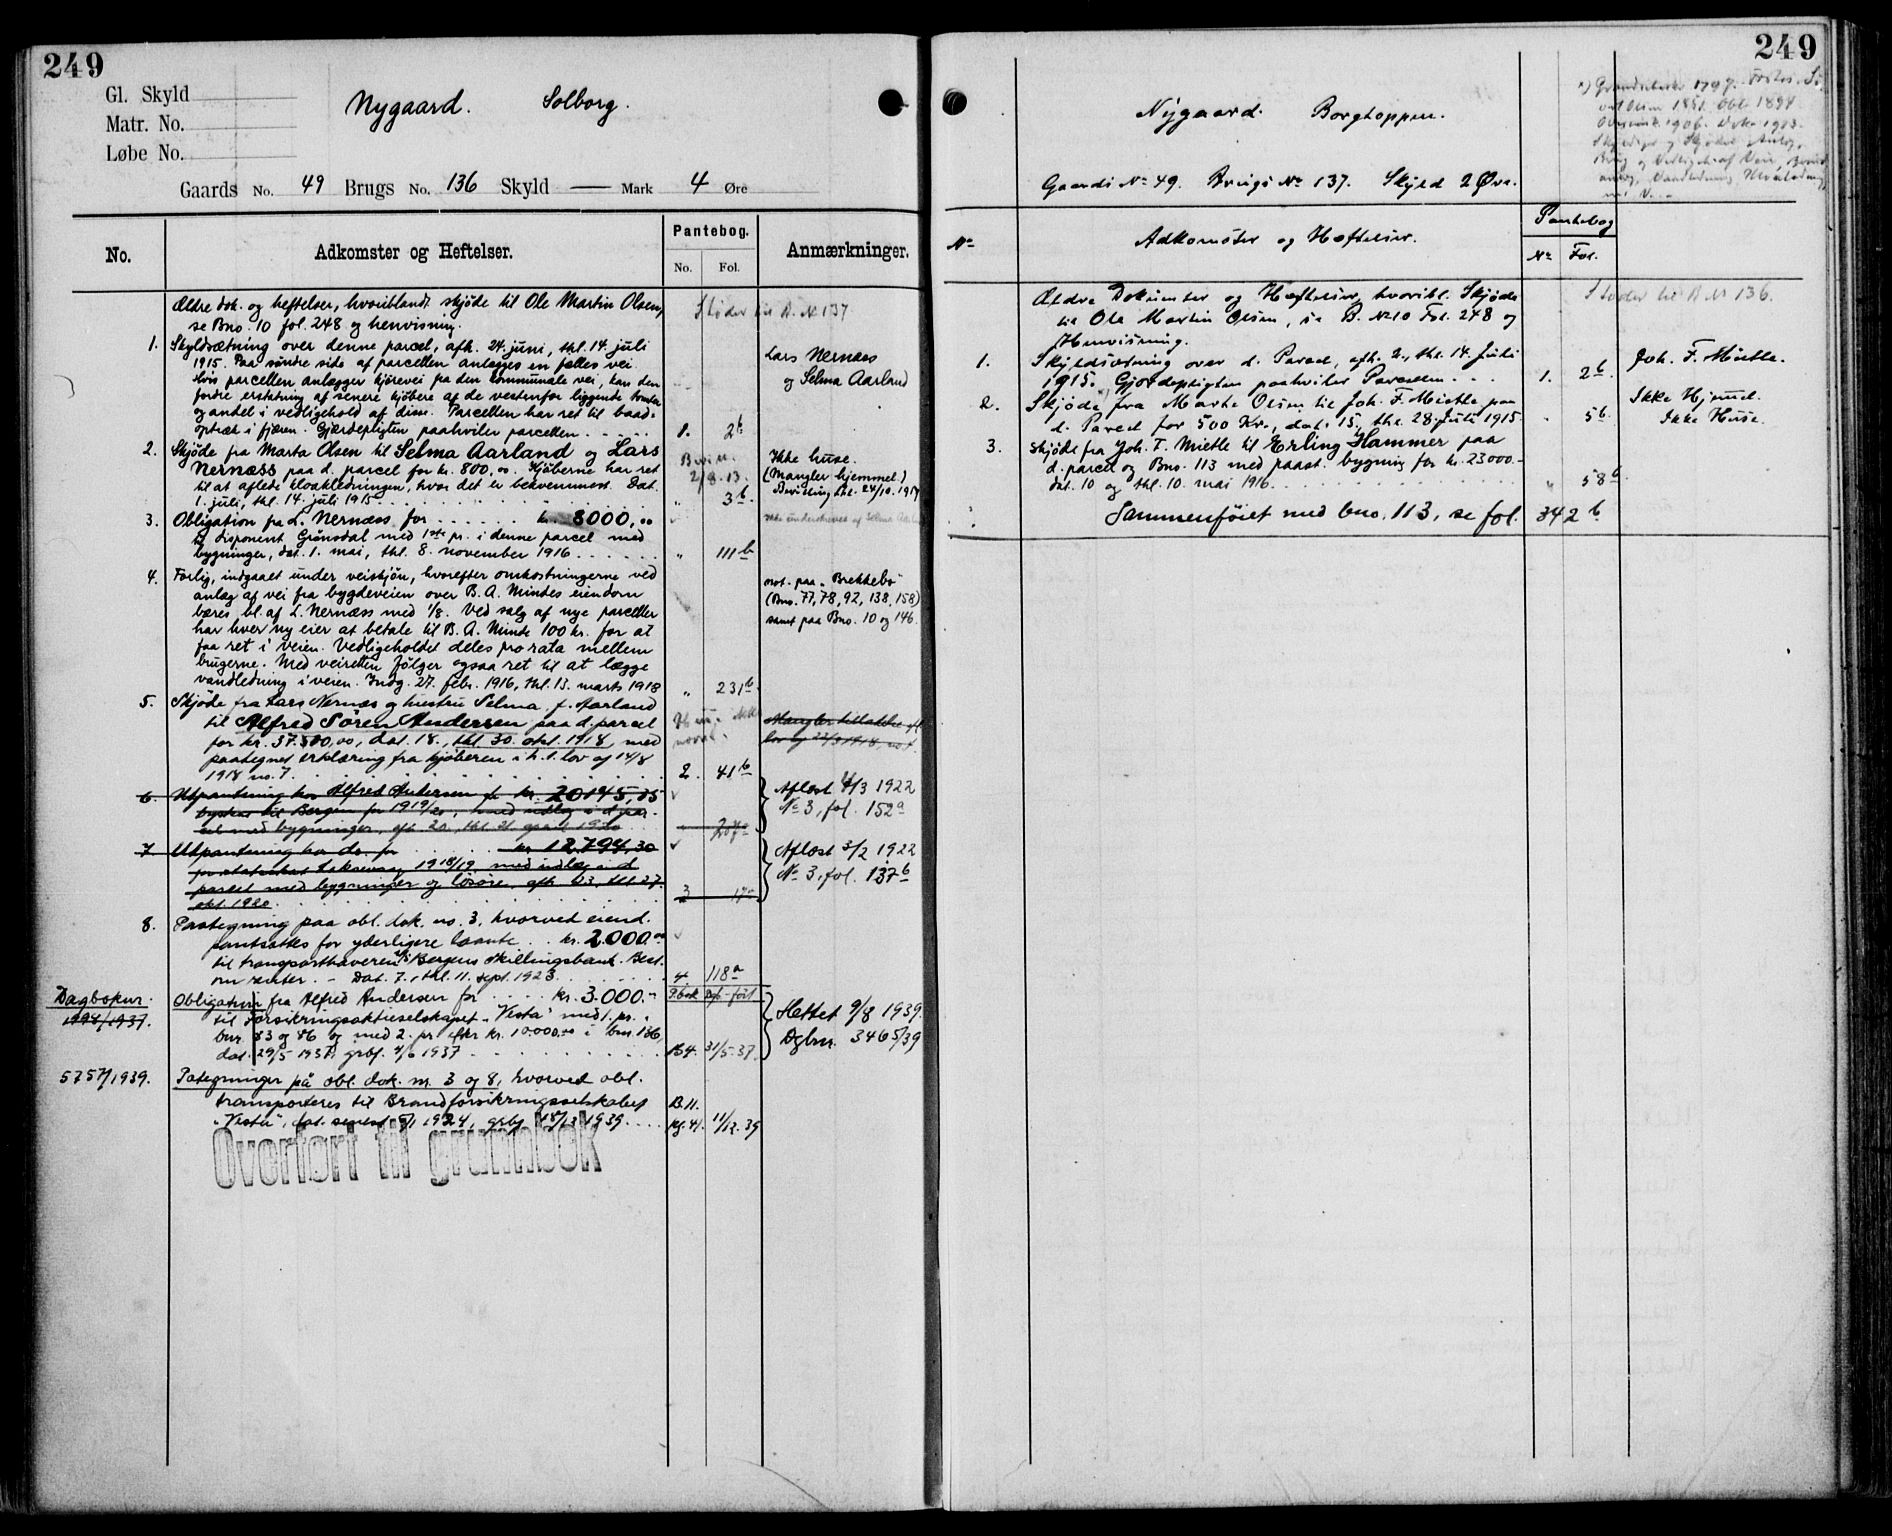 249
Gl. Skyld
Matr. No.
Løbe No.
Nygaard. Solborg.
Gaards No. 49 Brugs No. 136 Skyld — Mark 4 Øre
No.
Adkomster og Heftelser.
Pantebog.
No. Fol.
Anmærkninger.
Ældre dok. og heftelser, hvoriblandt skjøde til Ole Martin Olsen,
se Bno. 10 fol. 248 og henvisning.
Støder til B. No 137
1. Skyldsætning over denne parcel, afh. 24. juni, thl. 14. juli
1915. Paa søndre side af parcellen anlægges en fælles vei
Hvis parcellen anlægger kjørevei fra den kommunale vei, kan den
fordre erstatning af senere kjøbere af de vestenfor liggende tomter
og andel i vedligehold af dem. Parcellen har ret til baad-
optræk i fjæren. Gjærdepligten paahviler parcellen. 1. 2b
Lars Nernæs
og Selma Aarland
2. Skjøde fra Marta Olsen til Selma Aarland og Lars
Nernæss paa d. parcel for kr. 800,00. Kjøberne har ret
til at aflede kloakledningen, hvor det er bekvemmest. Dat.
1. juli, thl. 14. juli 1915. " 3b
2/8. 13.
Ikke huse.
(Mangler hjemmel)
Bevilling thl. 24/10. 1917
3. Obligation fra L. Nernæss for kr. 8000,00
til disponent Grønsdal med 1ste pr. i denne parcel med
bygninger, dat. 1. mai, thl. 8. november 1916. " 111b
4. Forlig, indgaaet under veiskjøn, hvorefter omkostningerne ved
anlæg af vei fra bygdeveien over B. A. Mindes eiendom
bæres bl. af L. Nernæss med 1/8. Ved salg af nye parceller
har hver ny eier at betale til B. A. Minde 100 kr. for at
faa ret i veien. Vedligeholdet deles pro rata mellem
brugerne. Med veiretten følger ogsaa ret til at lægge
vandledning i veien. Indg. 27. febr. 1916, thl. 13. marts 1918 " 231b
not. paa "Brekkebo"
(Bno. 77, 78, 92, 138, 158)
samt paa Bno. 10 og 146.
5. Skjøde fra Lars Nernæs og hustru Selma f. Aarland
til Alfred Søren Andersen paa d. parcel
for kr. 37.500,00, dat. 18., thl. 30. okt. 1918, med
paategnet erklæring fra kjøberen i h. t. lov af 14/8
1918 no. 7. 2. 41b
Mangler tilladelse
6. Utpantning hos Alfred Andersen for kr. 20145,35
byskat til Bergen for 1919/20, med utlæg i d. par-
cel med bygninger, afh. 20., thl. 21. april 1920
Aflæst 4/3 1922
No 3, fol. 152a
7. Utpantning hos do. for kr. 12.794,30
1918/19 med utlæg i d.
parcel med bygninger og løsøre, afh. 23., thl. 27.
okt. 1920. 3
Aflæst 3/2 1922
No 3, fol. 137b
8. Paategning paa obl. dok. no. 3, hvorved eiend.
pantsættes for yderligere laante kr. 2.000.00
til transporthaveren A/S Bergens Skillingsbank. Best.
om renter. - Dat. 7., thl. 11. sept. 1923. 4 118a
Dagboknr.
1998/1937.
Obligation fra Alfred Andersen for kr. 3.000.-
til Forsikringsaktieselskapet "Vesta" med 1. pr. i
bnr. 83 og 86 og med 2. pr. efter kr. 10.000.00 i bnr. 136,
dat. 29/5 1937, grbf. 4/6 1937 B4. 31/5-37.
Slettet 9/8 1939.
Dgbnr. 3465/39
5757/1939.
Påtegninger på obl. dok. nr. 3 og 8, hvorved obl.
transporteres til Brandforsikringsselskabet
"Vesta", dat. senest 1924, grbf. 1939. B.11. 11/12.39
Overført til grunnbok
249
Nygaard. Borgtoppen.
Gaards No 49. Brugs No 137. Skyld 2 Øre.
No
Adkomster og Hæftelser.
Pantebog
No Fol.
Ældre Dokumenter og Hæftelser, hvoribl. Skjøde
til Ole Martin Olsen, se B. No 10 Fol. 248 og
Henvisning.
Støder til B No 136.
1. Skyldsætning over d. Parcel, afh. 2., thl. 14. Juli
1915. Gjærdepligten paahviler Parcellen. 1. 2b
Joh. F. Mietle.
2. Skjøde fra Marte Olsen til Joh. F. Mietle paa
d. Parcel for 500 Kr., dat. 15., thl. 28. Juli 1915 " 5b
Ikke Hjemmel.
Ikke Huse.
3. Skjøde fra Joh. F. Mietle til Erling Hammer paa
d. parcel og Bno. 113 med paast. bygning for kr. 23000.-
dat. 10 og thl. 10. mai 1916. " 58b
Sammenføiet med bno. 113, se fol. 342b